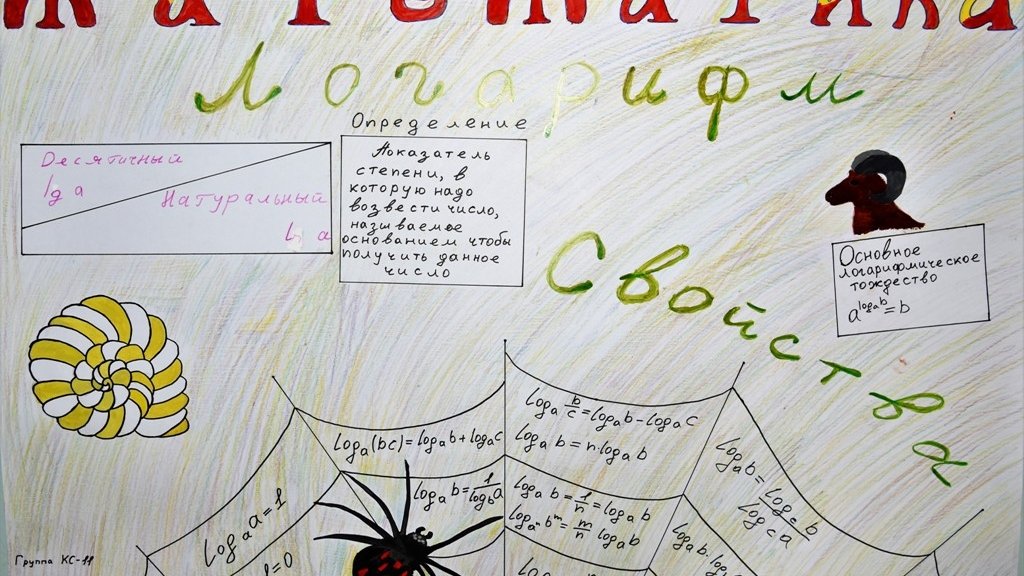 Математика
Логарифм
Десятичный
lg a
Натуральный
ln a
Определение
Показатель
степени, в
которую надо
возвести число,
называемое
основанием чтобы
получить данное
число
Свойства
Основное
логарифмическое
тождество
a^log_a b = b
log_a(bc)=log_a b+log_a c
log_a b/c=log_a b-log_a c
log_a b=n·log_a b
log_a b=1/log_b a
log_a b=1/n=log_a b
log_aⁿ b^m=m/n log_a b
log_a b=log_c b/log_c a
log_a a=1
1=0
Группа КС-11